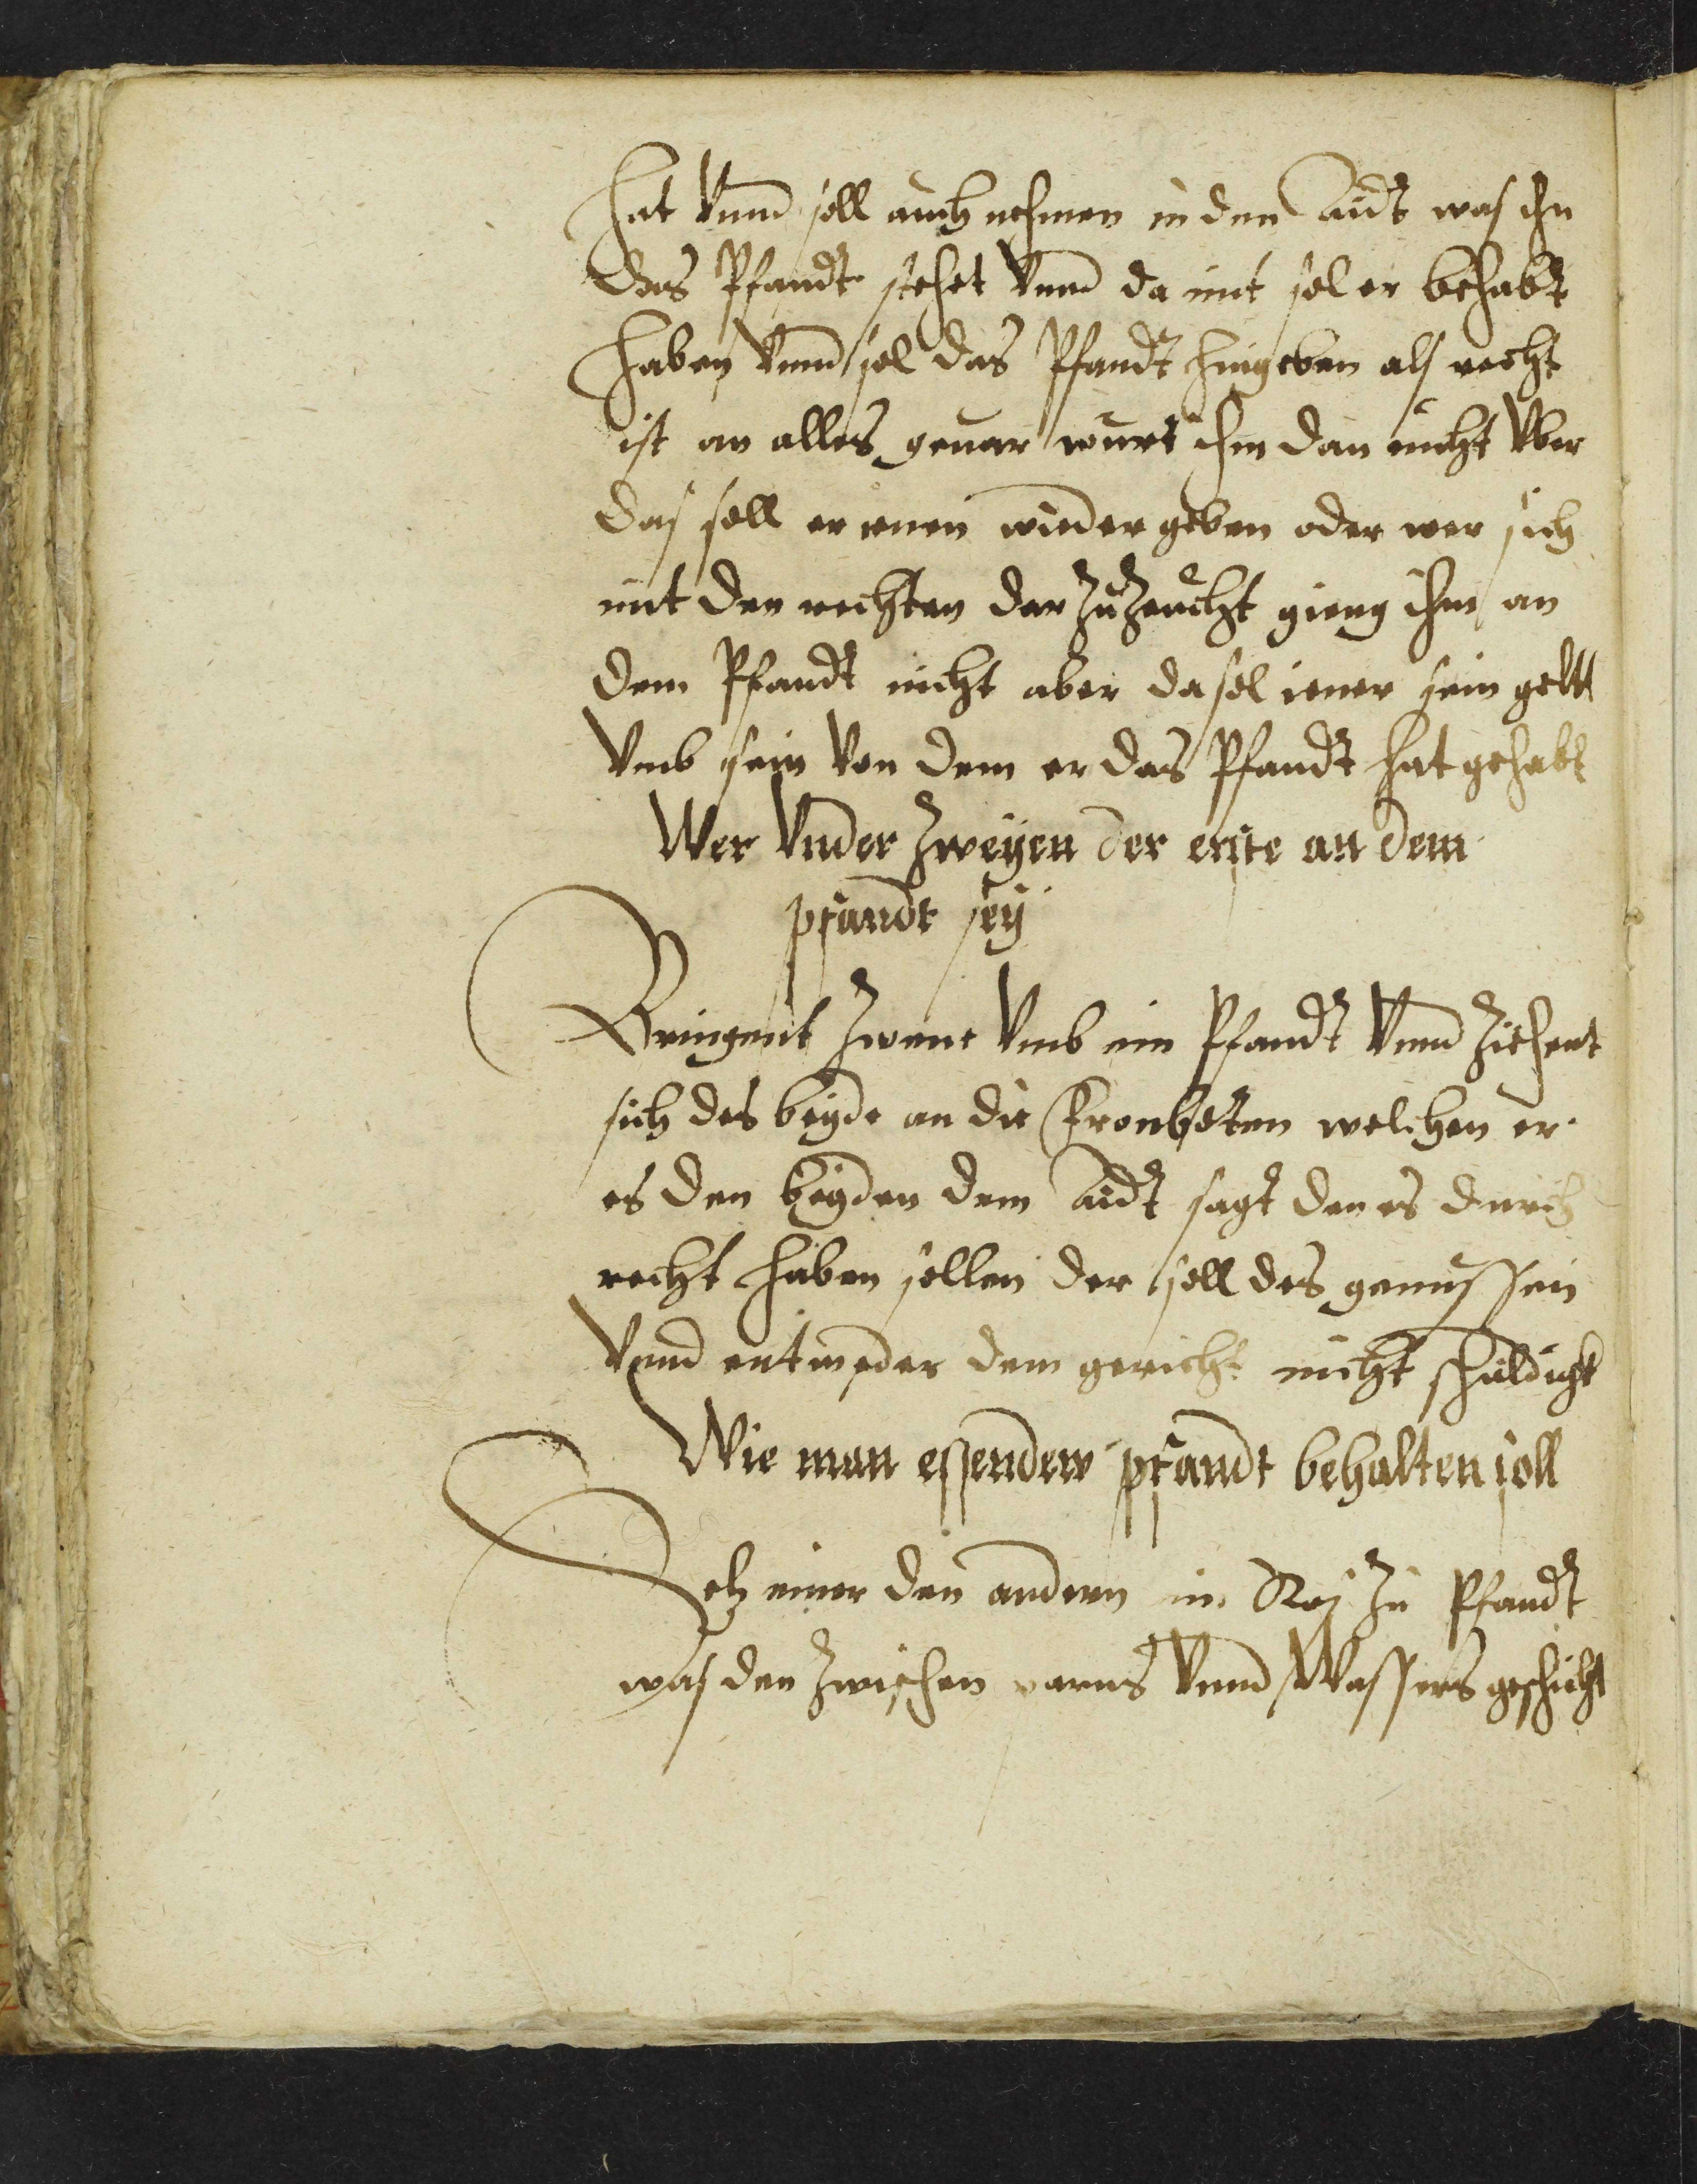 hat Vnnd soll auch nehmen in den Aidt was ihn
das Pfandt stehet Vnnd da mit sol er behabt
haben Vnnd sol das Pfandt hingeben als recht
ist an alles geuar wurt ihm dan nicht Vber
das soll er ienen wieder geben oder wer sich
mit den rechten der zu zeucht gieng ihm an
dem Pfandt nicht aber da sol iener sein geltt
Vmb sein Von dem er das Pfandt hat gehabt
Wer Vnder Zweyen der erste an dem
pfandt sey
Bringent Zwene Vmb ein Pfandt Vnnd Ziehent
sich des beyde an die Fronbotten welchen er
es den beyden dem Aidt sagt den es durch
recht haben sollen der soll des genussen
Vnnd entweder dem gericht nicht schuldigk
Wie man essendew pfandt behalten soll
Setz einer den andern ein Ros zu Pfandt
was den Zwischen varns Vnnd Wassers geschicht